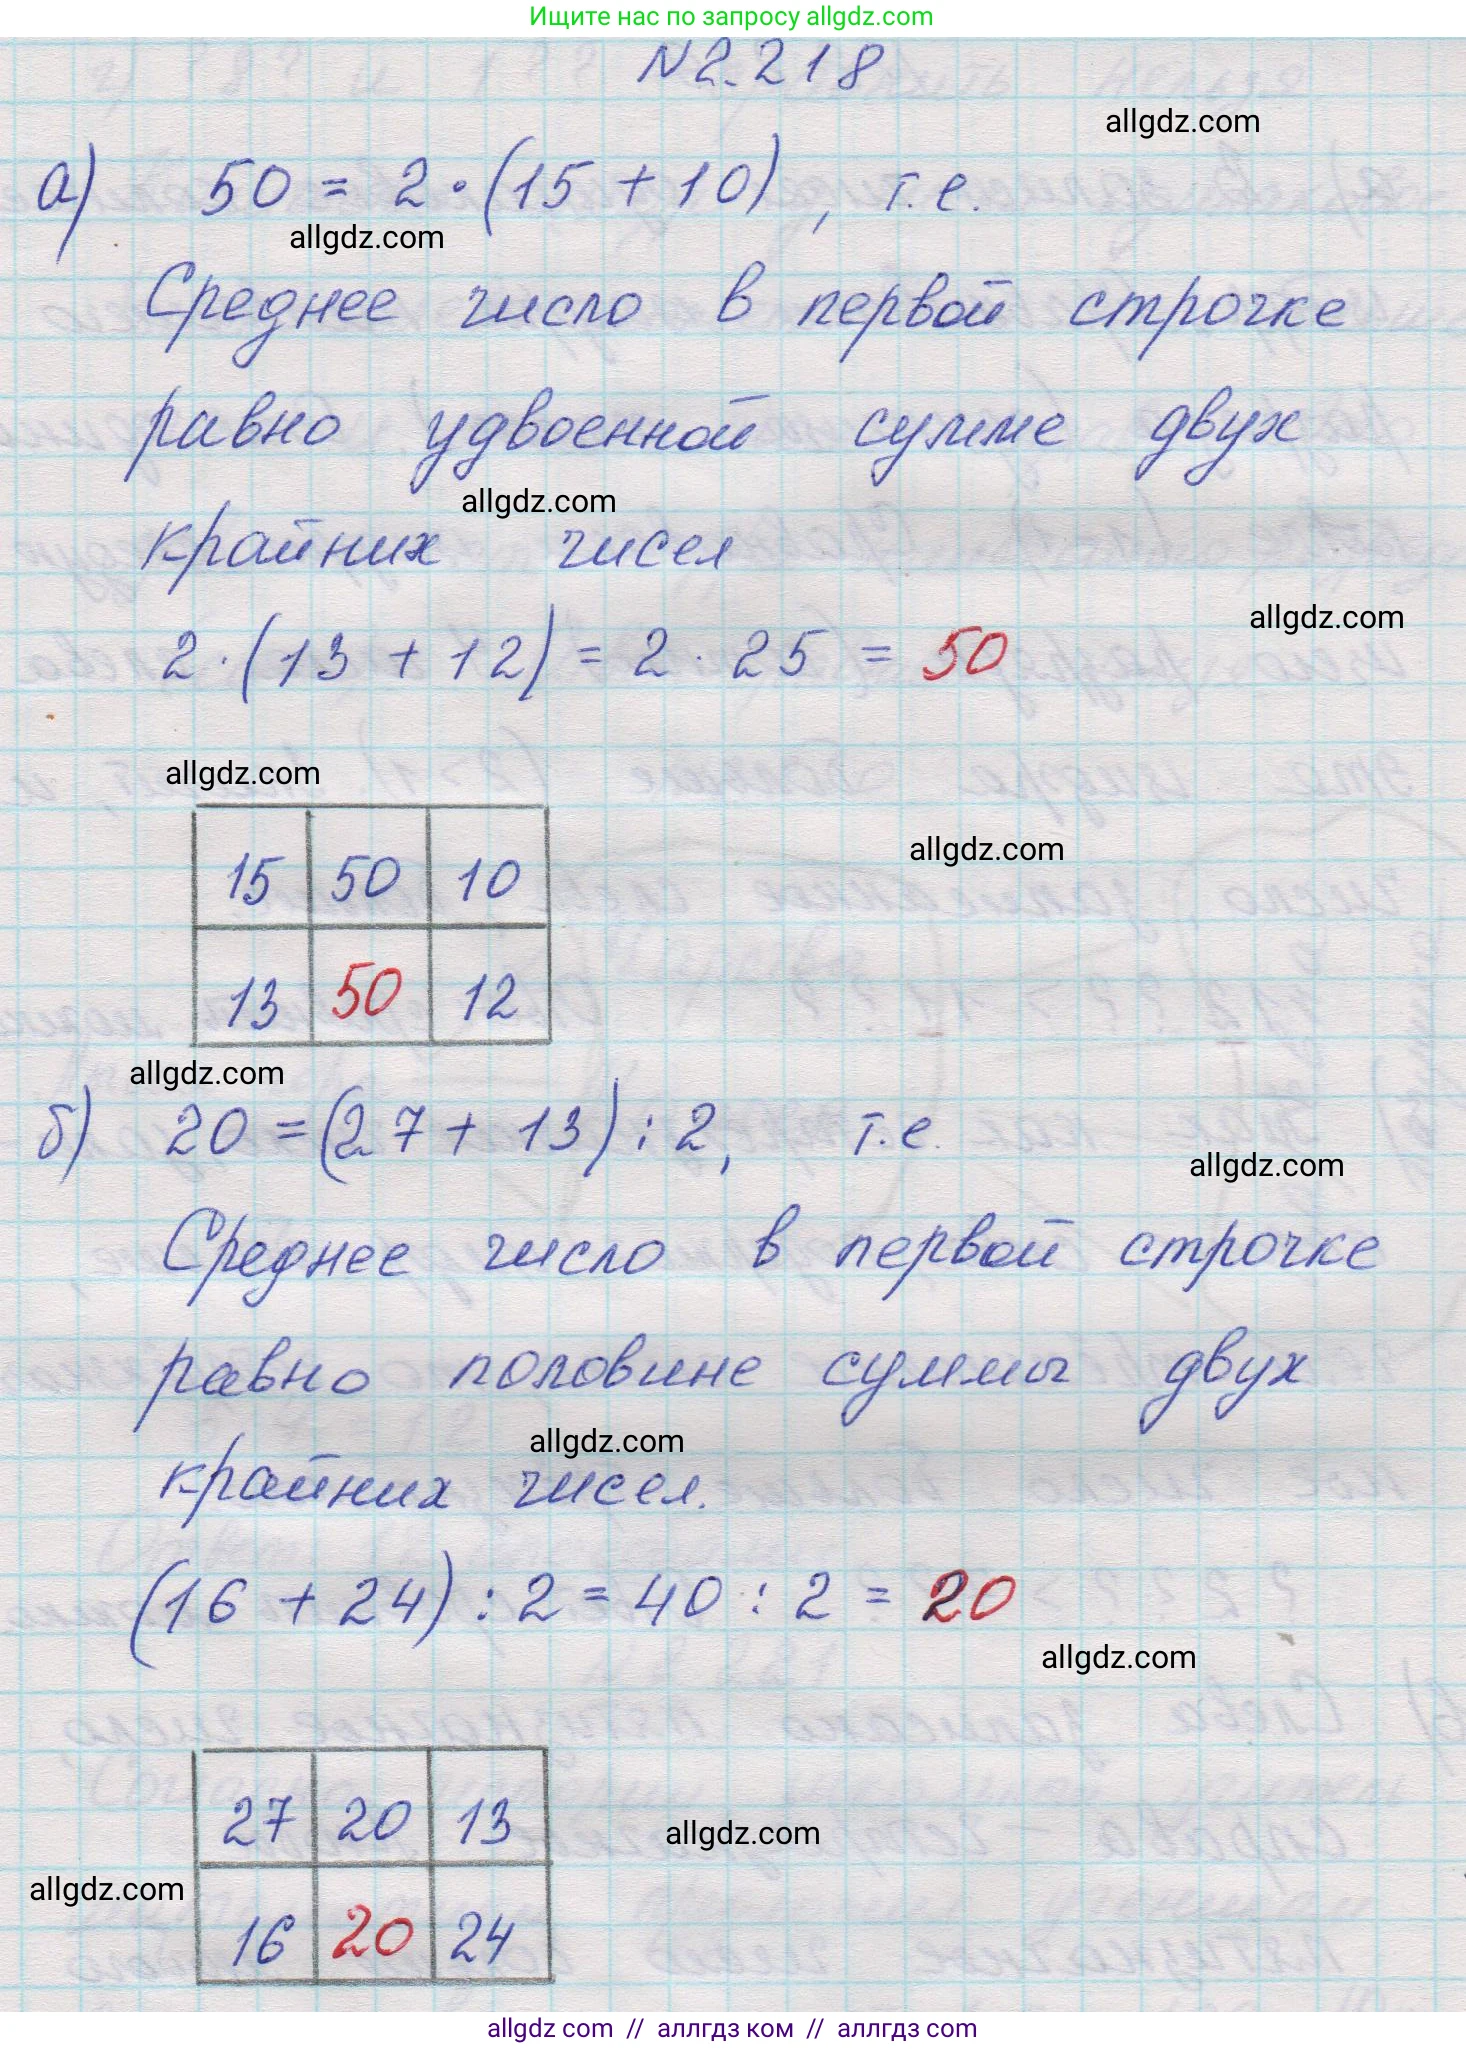 Ищите нас по запросу allgdz.com
№2.218
allgdz.com
а) 50 = 2·(15 + 10), т.е.
allgdz.com
Среднее число в первой строчке
равно удвоенной сумме двух
allgdz.com
крайних чисел
allgdz.com
2·(13 + 12) = 2·25 = 50
allgdz.com
allgdz.com
15 50 10
13 50 12
allgdz.com
б) 20 = (27 + 13) : 2, т.е.
allgdz.com
Среднее число в первой строчке
равно половине суммы двух
allgdz.com
крайних чисел.
(16 + 24) : 2 = 40 : 2 = 20
allgdz.com
27 20 13
allgdz.com
allgdz.com
16 20 24
allgdz.com // аллгдз ком // аллгдз.com